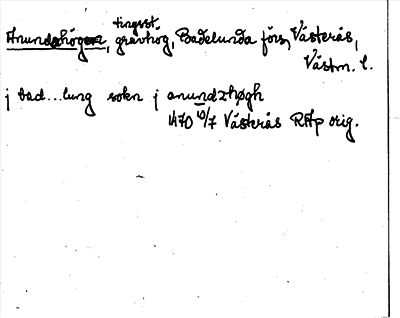 tingsst.
Anundshögen, gravhög, Badelunda förs, Västerås,
Västm. l.
j bad...lung sokn j anundzhøgh
1470 10/7 Västerås RAp orig.